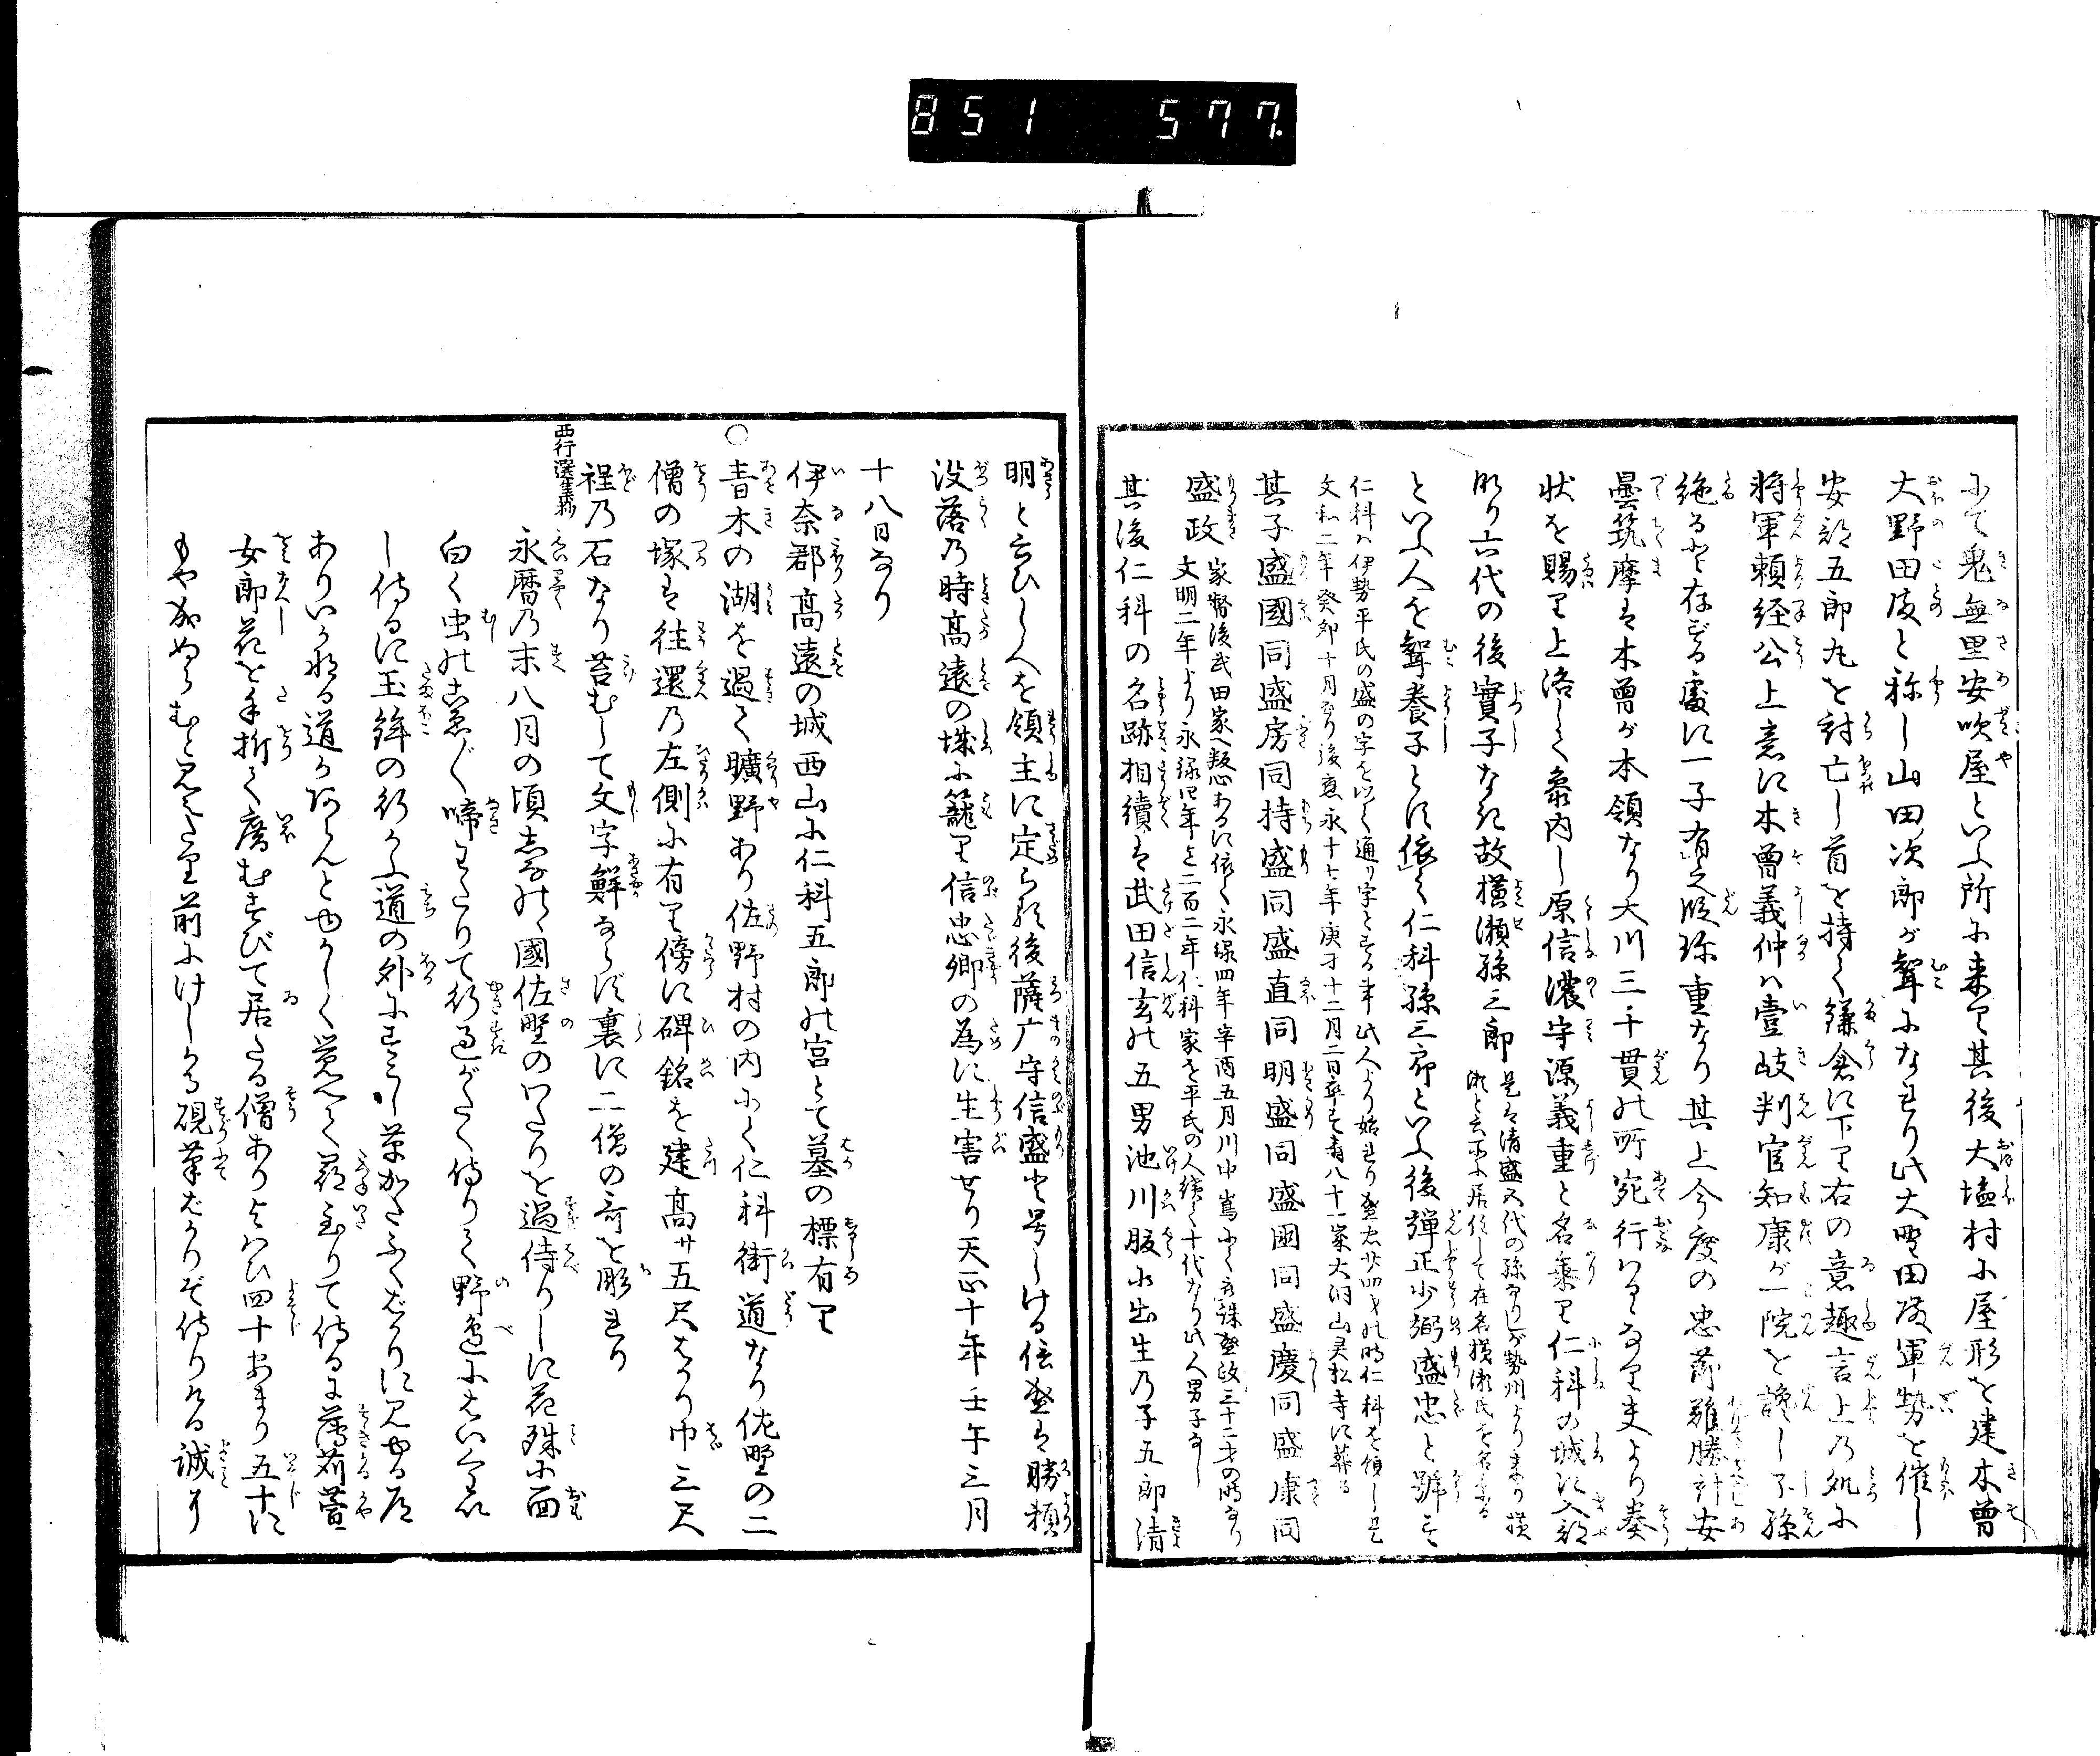 851 577.
にて鬼無里安吹屋といふ所に来り其後大塩村に屋形を建木曽
大野田殿と称し山田次郎が聟になれり此大野田殿軍勢を催し
安部五郎丸を討亡し首を持て鎌倉に下り右の意趣言上の処に
将軍頼経公上意に木曽義仲ハ壹岐判官知康が一院を讒し子孫
絶るを存ずる處に一子有之段珍重なり其上今度の忠節難勝計安
曇筑摩は木曽が本領なり大川三千貫の所宛行はるゝなり夫より奏
状を賜り上洛し参内し原信濃守源義重と名乗り仁科の城に入部
なり六代の後實子なき故横瀬孫三郎
是は清盛五代の孫なりしが勢州より来り横
瀬と云所に居住して在名横瀬氏を名のる
といふ人を聟養子とに依て仁科孫三郎といふ後弾正少弼盛忠と號す
仁科ハ伊勢平氏の盛の字を以て通り字とする事此人より始まり盛忠廿四才の時仁科を領し
文和二年癸卯十月なり後應永十七年庚寅十二月二日卒す寿八十一歳大洞山灵松寺に葬る
其子盛國同盛房同持盛同盛直同明盛同盛國同盛慶同盛康同
盛政
家督後武田家へ叛心あるに依て永禄四年辛酉五月川中嶌にて被誅盛政三十二才の時なり
文明二年より永禄四年迄二百二年仁科家を平氏の人継て十代なり此人男子なし
其後仁科の名跡相續は武田信玄の五男池川腹に出生の子五郎清
明と云ひし人を領主に定らる後薩广守信盛と号しける信盛は勝頼
没落の時高遠の城に籠り信忠卿の為に生害せり天正十年壬午三月
十八日なり
伊奈郡高遠の城西山に仁科五郎の宮とて墓の標有り
○青木の湖を過て曠野あり佐野村の内にて仁科街道なり佐野の二
僧の塚は往還の左側に有り傍に碑銘を建高サ五尺はかり巾三尺
程の石なり苔むして文字鮮ならず裏に二僧の哥を彫れり
西行選集抄
永暦の末八月の頃志なの國佐野のわたりを過侍りしに花殊に面
白く虫の声ゑ〴〵啼わたりて行過がたく侍りて野邉にはいくわい
し侍るに玉鉾の行かふ道の外にすこし草かたふくばかりに見ゆる道
ありいかなる道かあらんとゆかしく覚へて尋ねいりて侍るに薄苅萱
女郎花を手折て庵むすびて居たる僧ありよはひ四十あまり五十に
もやなりぬらむと見えたり前にけしかる硯筆ばかりぞ侍りける誠に